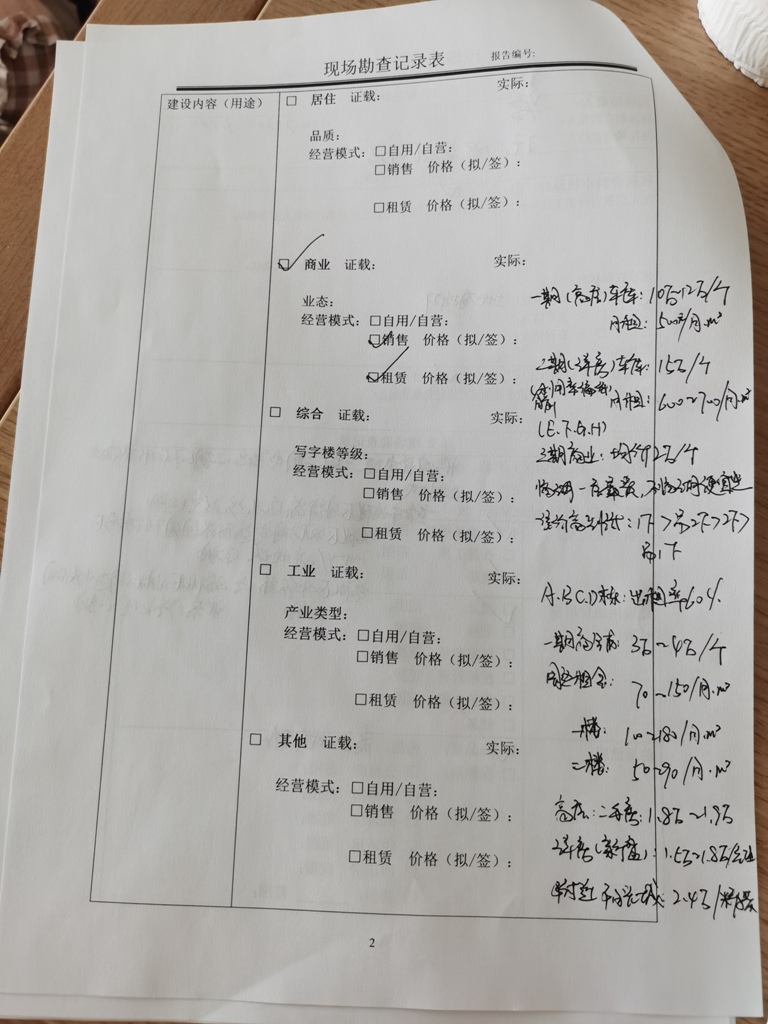 现场勘查记录表 报告编号:
建设内容（用途） □ 居住 证载: 实际:
品质:
经营模式: □自用/自营:
□销售 价格（拟/签）:
□租赁 价格（拟/签）:
☑ 商业 证载: 实际:
业态:
经营模式: □自用/自营:
☑销售 价格（拟/签）:
☑租赁 价格（拟/签）:
□ 综合 证载: 实际:
写字楼等级:
经营模式: □自用/自营:
□销售 价格（拟/签）:
□租赁 价格（拟/签）:
□ 工业 证载: 实际:
产业类型:
经营模式: □自用/自营:
□销售 价格（拟/签）:
□租赁 价格（拟/签）:
□ 其他 证载: 实际:
经营模式: □自用/自营:
□销售 价格（拟/签）:
□租赁 价格（拟/签）:
一期(高层)车库: 10万~12万/个
月租: 500元/月·m²
二期(洋房)车库: 15万/个
月租: 600~700/月·m²
(E.F.G.H)
三期商业: 均价2万/个
A.B.C.D栋: 出租率60%
一期 3万~4万/个
租金: 70~150/月·m²
一楼: 100~180/月·m²
二楼: 50~90/月·m²
高层: 二手房: 1.8万~1.9万
洋房(新盘): 1.5万~1.8万
附近 2.4万/
2